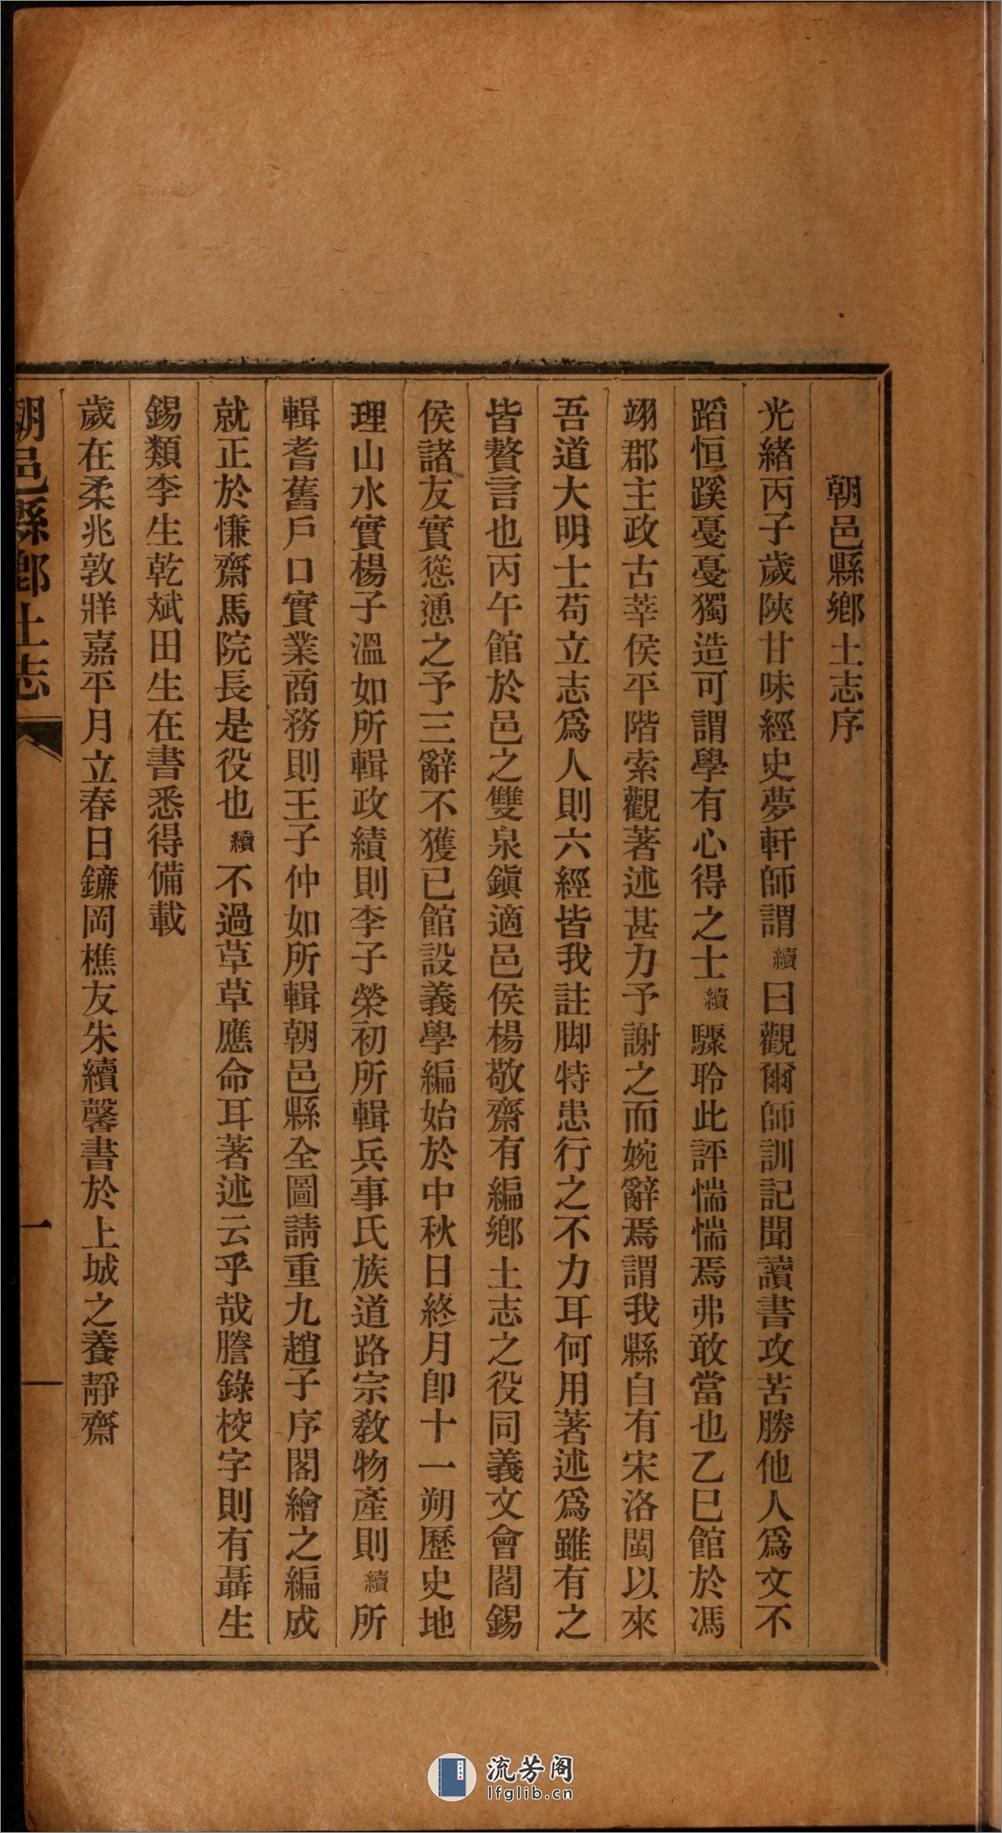 朝邑縣鄉土志序
光緒丙子歲陝甘味經史夢軒師謂續曰觀爾師訓記聞讀書攻苦勝他人爲文不
蹈恒蹊戞戞獨造可謂學有心得之士續驟聆此評惴惴焉弗敢當也乙巳館於馮
翊郡主政古莘侯平階索觀著述甚力予謝之而婉辭焉謂我縣自有宋洛閩以來
吾道大明士苟立志爲人則六經皆我註脚特患行之不力耳何用著述爲雖有之
皆贅言也丙午館於邑之雙泉鎭適邑侯楊敬齋有編鄉土志之役同義文會閻錫
侯諸友實慫慂之予三辭不獲已館設義學編始於中秋日終月卽十一朔歷史地
理山水實楊子溫如所輯政績則李子榮初所輯兵事氏族道路宗敎物產則續所
輯耆舊戶口實業商務則王子仲如所輯朝邑縣全圖請重九趙子序閣繪之編成
就正於慊齋馬院長是役也續不過草草應命耳著述云乎哉謄錄校字則有聶生
錫類李生乾斌田生在書悉得備載
歲在柔兆敦牂嘉平月立春日鐮岡樵友朱續馨書於上城之養靜齋
朝邑縣鄉土志
一
流芳阁
lfglib.cn